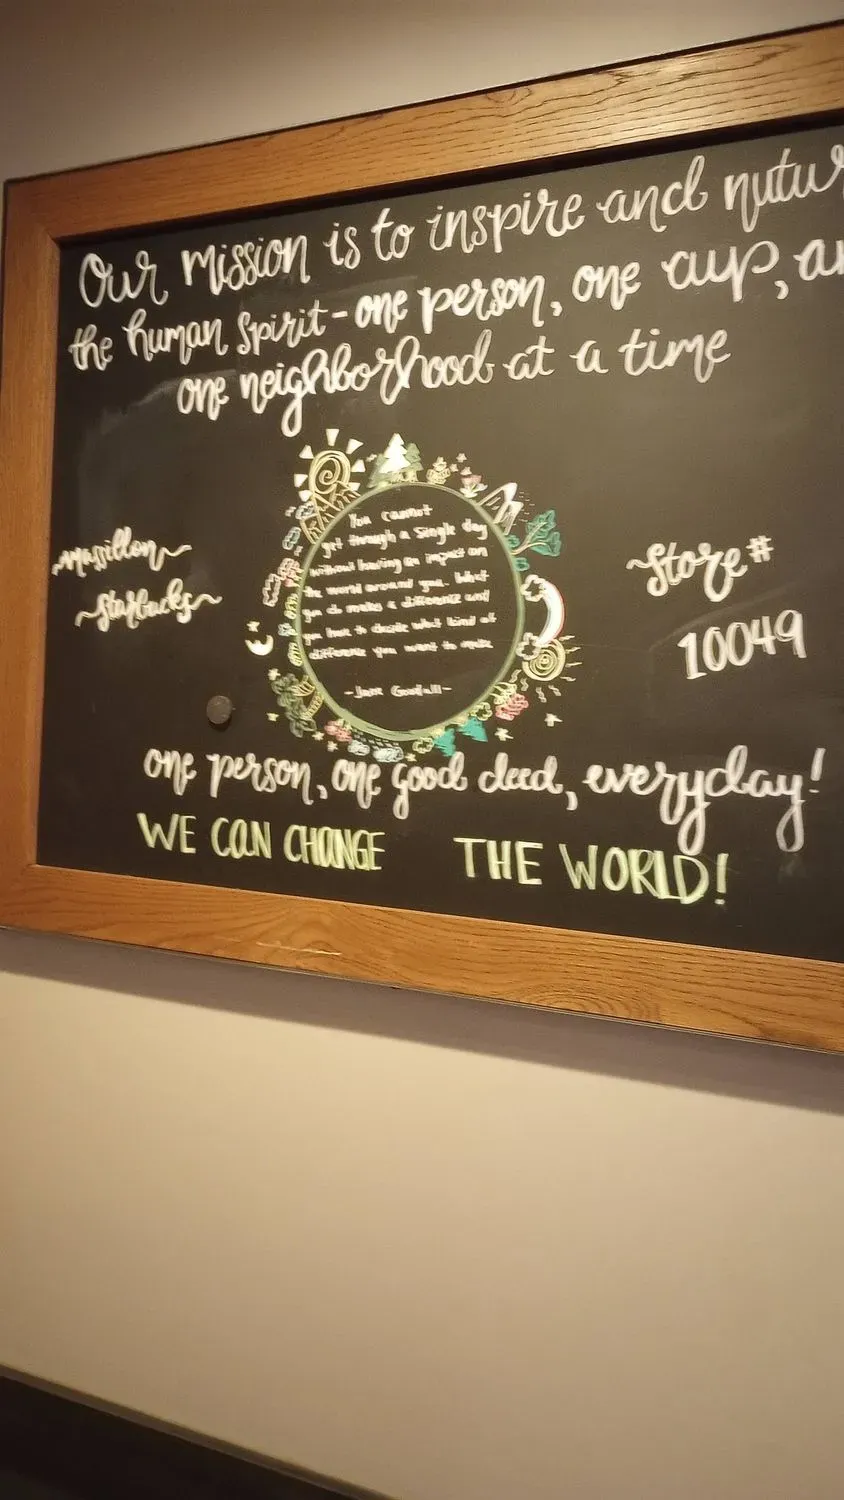 Our mission is to inspire and nutur
the human spirit - one person, one cup, an
one neighborhood at a time
You cannot
get through a single day
without having an impact on
the world around you. What
you do makes a difference and
you have to decide what kind of
difference you want to make
- Jane Goodall -
~Massillon~
~Starbucks~
~Store #
10049
one person, one good deed, everyday!
WE CAN CHANGE THE WORLD!